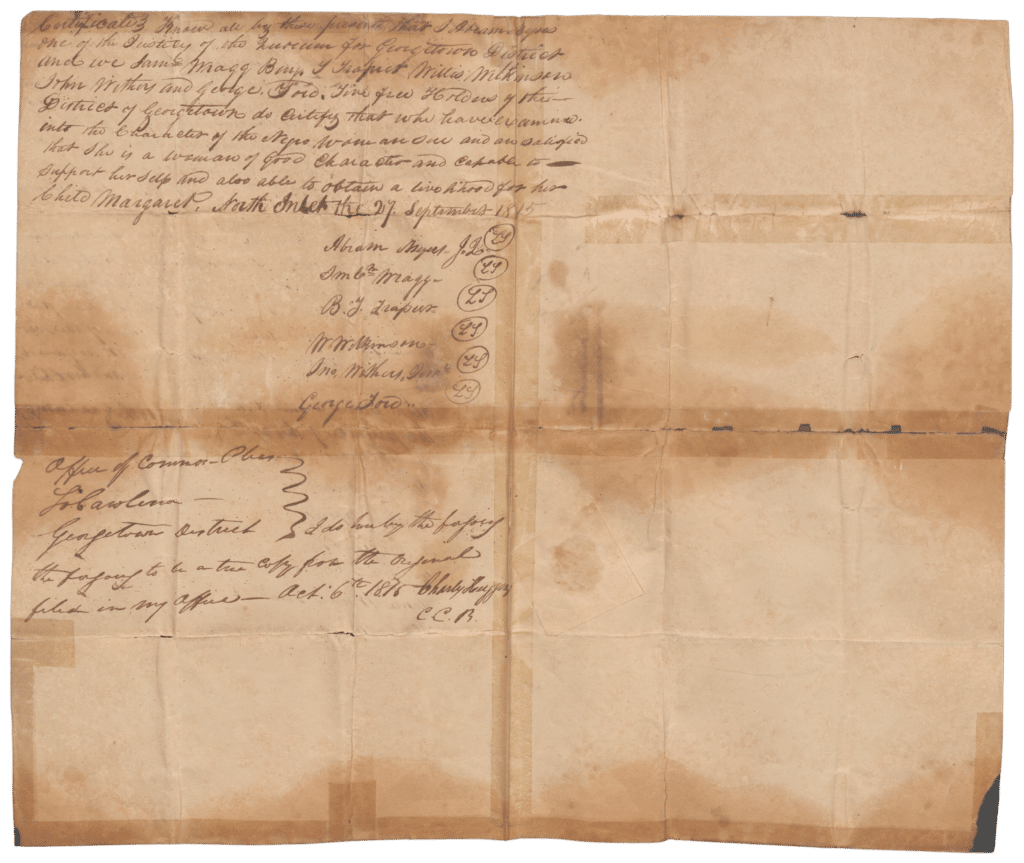 Certificate} Know all by these presents that I Abram Myers
one of the Justices of the Quorum for Georgetown District
and we Saml Wragg Benj. F Trapier Willis Wilkinson
John Withers and George Ford. Five free Holders of the—
District of Georgetown do Certify that who have examined
into the Character of the Negro Woman Sue and an satisfied
that she is a woman of Good Character and Capable to —
support her self and also able to obtain a livelihood for her
Child Margaret. North Inlet the 27. September 1815
Abram Myers J.Q. LS
Wragg LS
B. F. Trapier LS
W. Wilkinson LS
Jno Withers, LS
George Ford LS
Office of Common Pleas
So Carolina —
Georgetown District } I do hereby the forgoing
the forgoing to be a true Copy from the Original
filed in my Office — Oct: 6th 1815 Charles
C C. P.